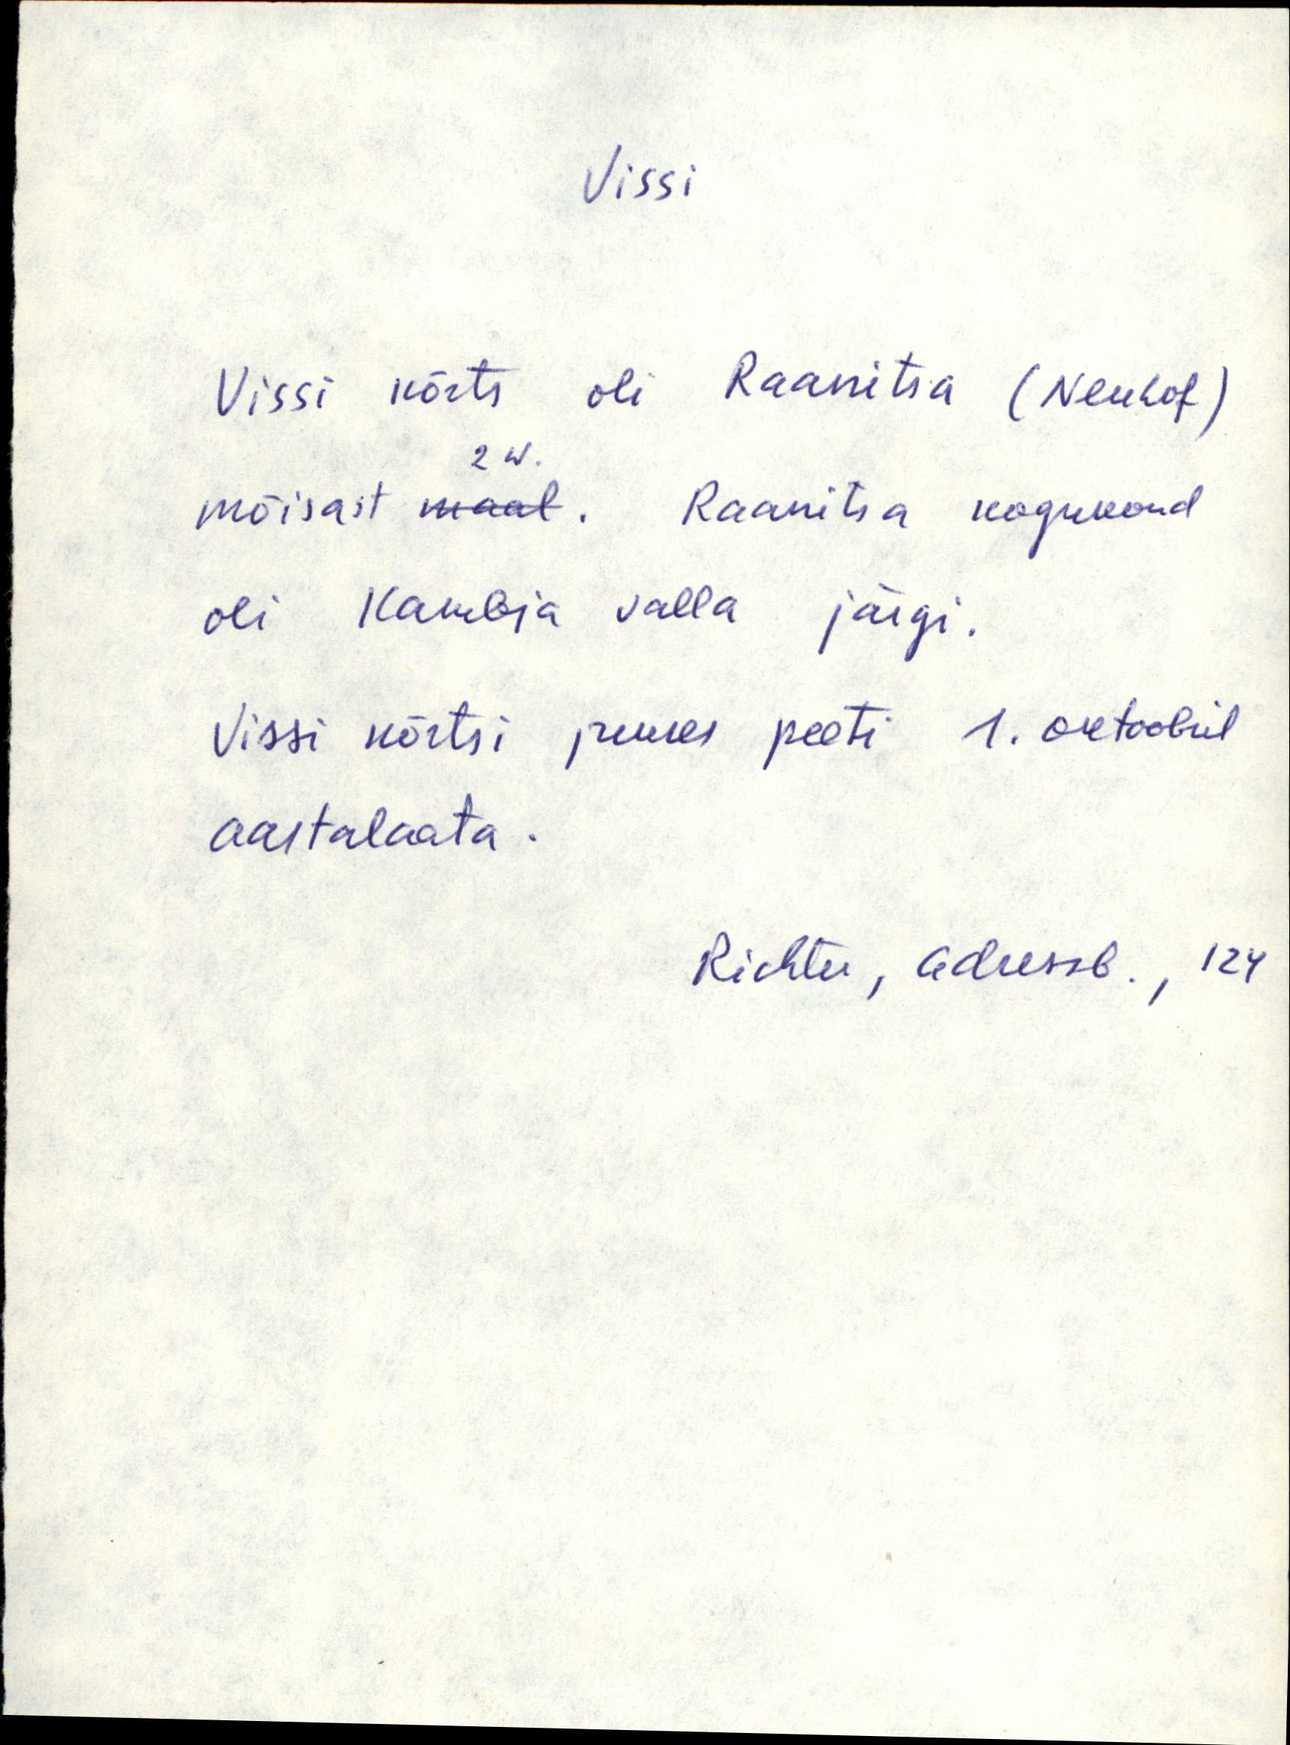 Vissi
Vissi kõrts oli Raanitsa (Neuhof)
2 w.
mõisast maal. Raanitsa kogukond
oli Kambja valla järgi.
Vissi kõrtsi juures peeti 1. oktoobril
aastalaata.
Richter, Adressb., 124